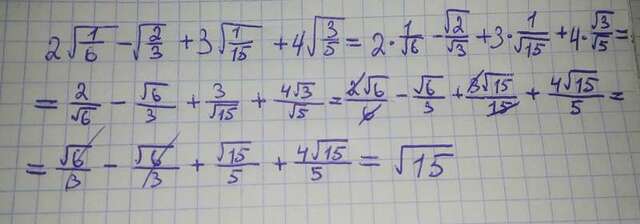 2√(1/6) - √(2/3) + 3√(1/15) + 4√(3/5) = 2·1/√6 - √2/√3 + 3·1/√15 + 4·√3/√5 =
= 2/√6 - √6/3 + 3/√15 + 4√3/√5 = 2√6/6 - √6/3 + 3√15/15 + 4√15/5 =
= √6/3 - √6/3 + √15/5 + 4√15/5 = √15